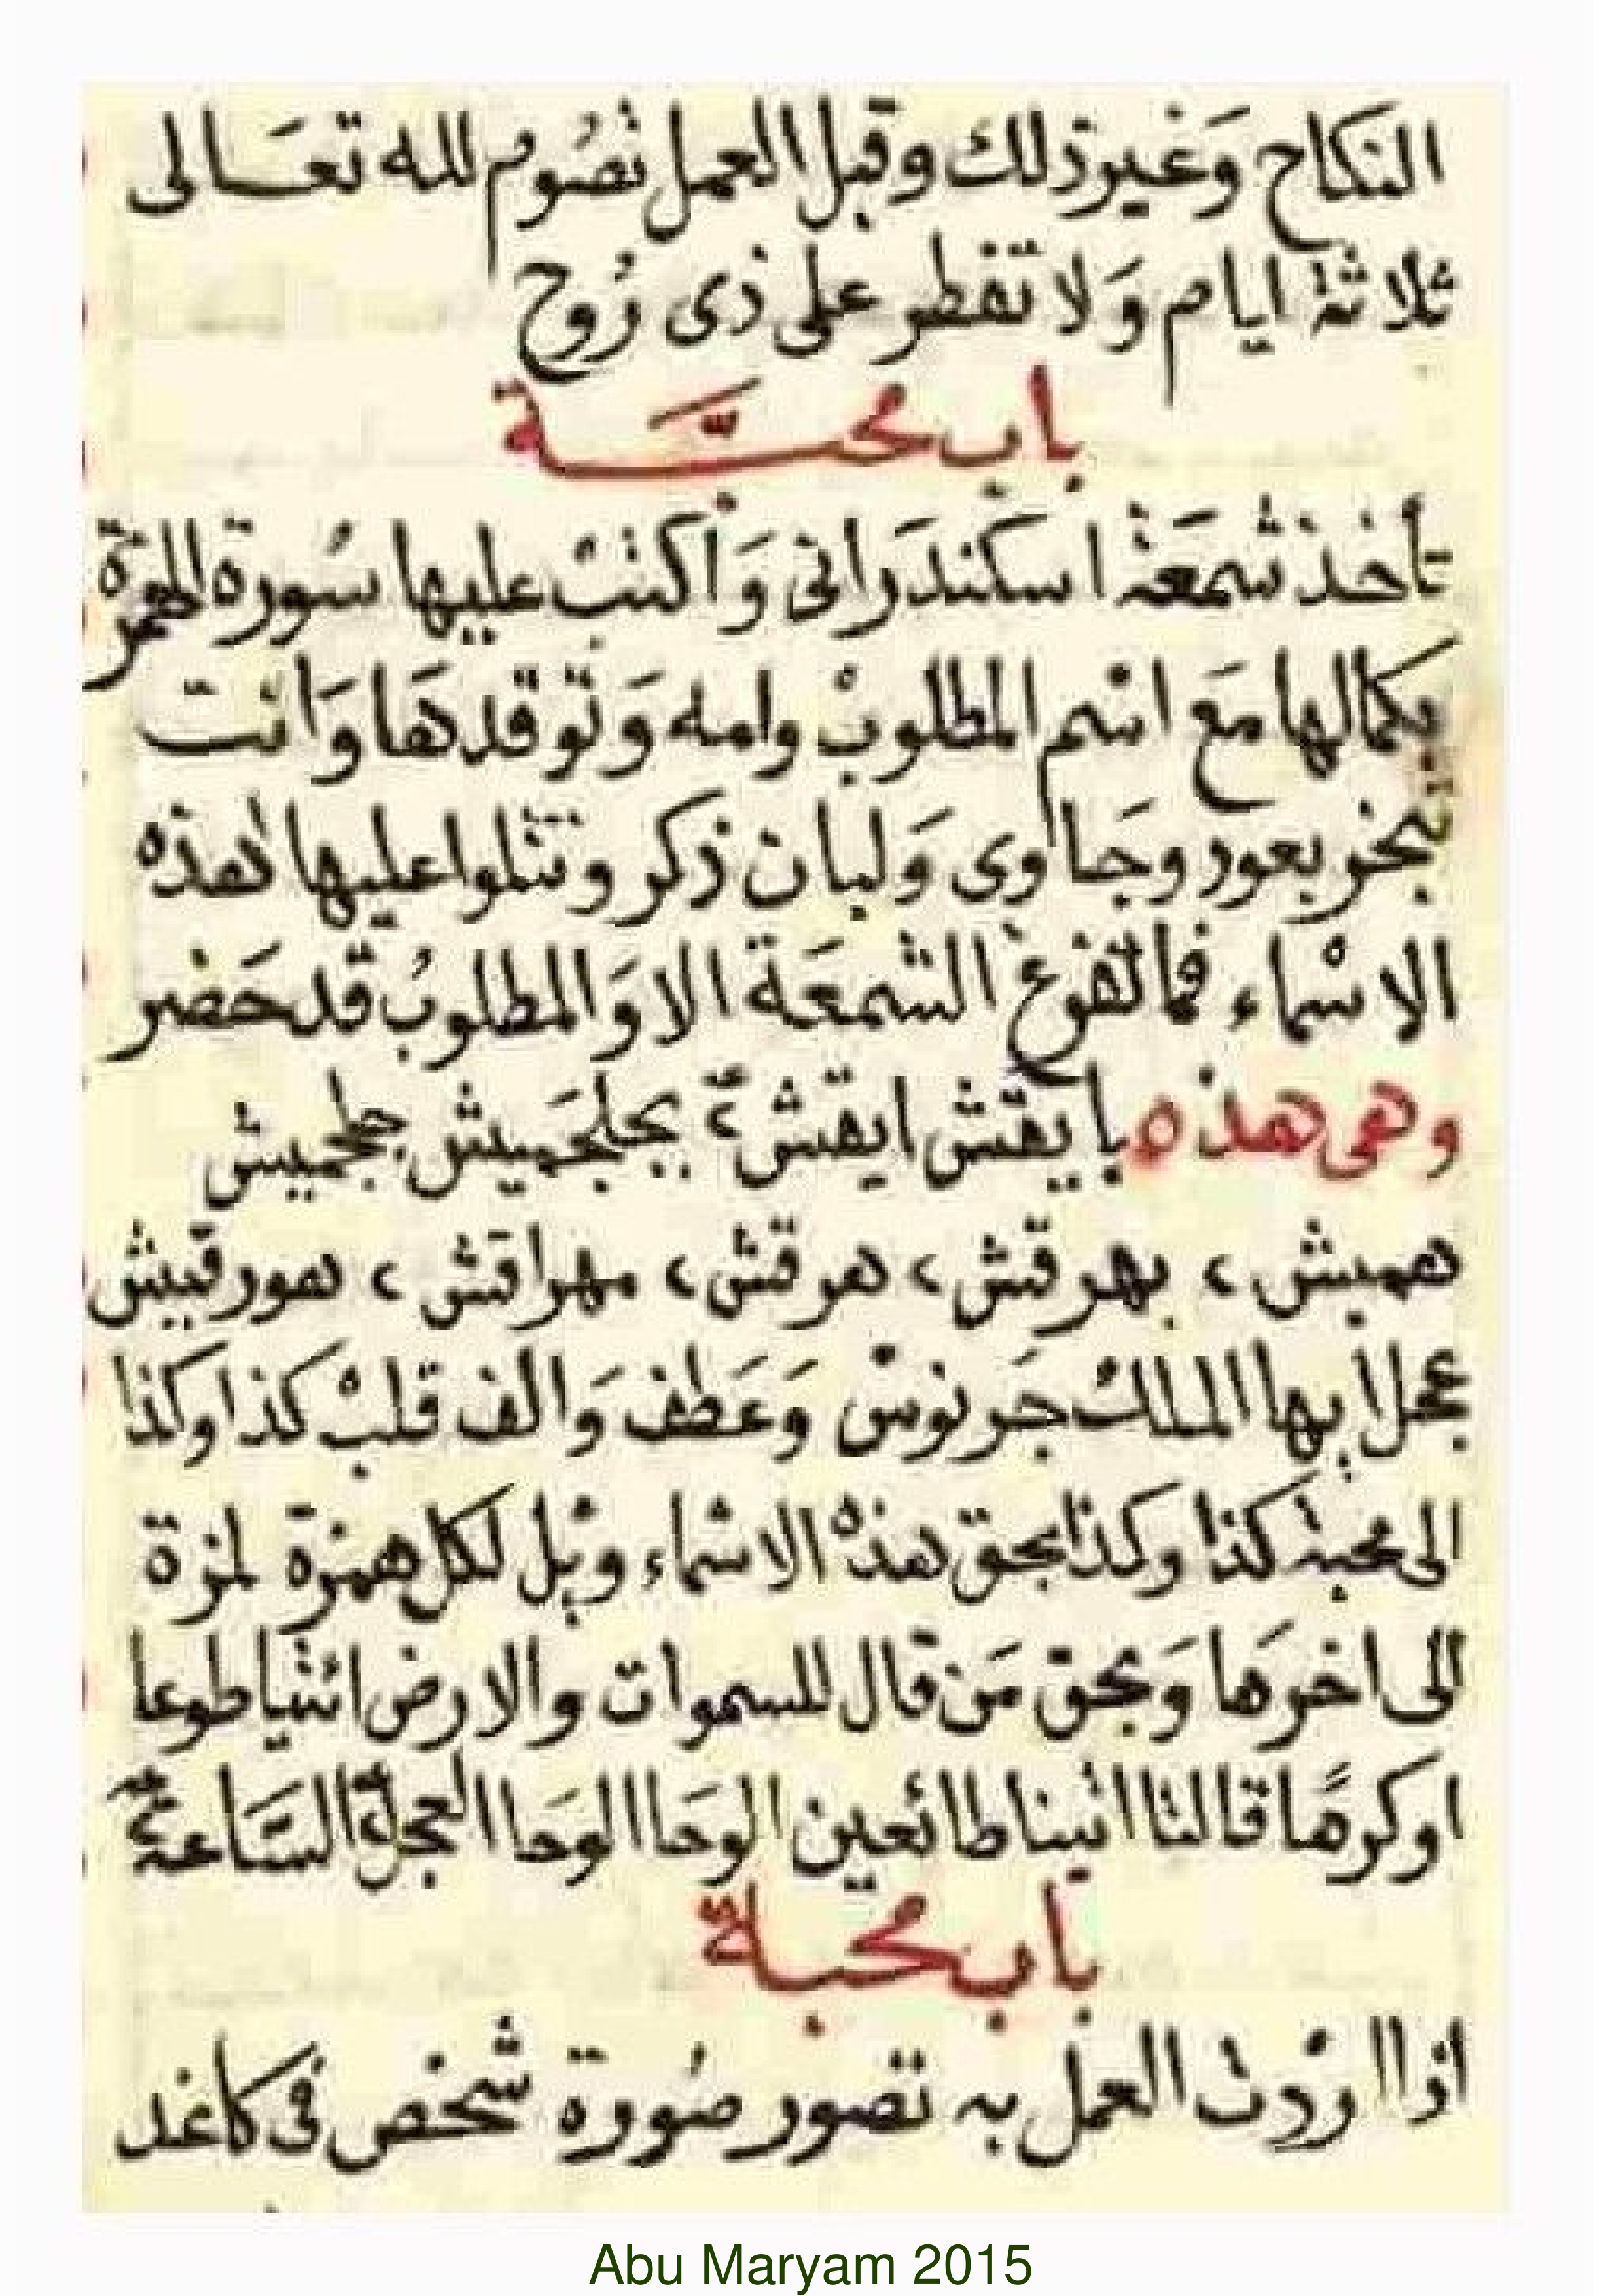 النكاح وَغير ذلك وقبل العمل تصُوم لله تعَالى
ثلاثة ايام وَلا تفطر على ذى رُوح
باب محبَّة
تأخذ شمعَة اسكندَرانى وَاكتبْ عليها سُورة الهمزة
بكمالها مَع اسْم المطلوبْ وامه وَتوقدهَا وَانت
تبخر بعود وجَاوى وَلبان ذكر وتتلوا عليها هذه
الاسْماء فما تفرغ الشمعَة الا وَالمطلوبُ قد حَضر
وهى هذه يا يقش ايقش ٢ بجلجَميش جلجميش
هميش ٢ بهرقش ٢ هرقش ٢ مهراقش ٢ هورقيش
عجلا بها الملك جَرنوسْ وَعَطف وَالف قلبْ كذا وكذا
الى محبة كذا وكذا بحق هذهْ الاسْماء ويْل لكل همزة لمزة
الى اخرهَا وَبحق مَن قال للسموات والارض ائتيا طوعا
اوكرهًا قالتا اتينا طائعين الوحَا الوحَا العجلة السَّاعة
باب محبة
اذا ارْدت العمل به تصور صُورة شخص فى كاغد
Abu Maryam 2015